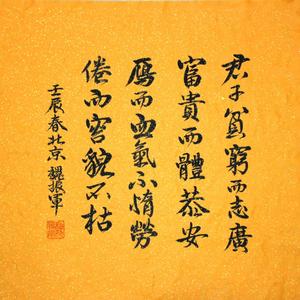 君子貧窮而志廣
富貴而體恭安
鴈而血氣不惰勞
倦而容貌不枯
壬辰春北京 魏振軍